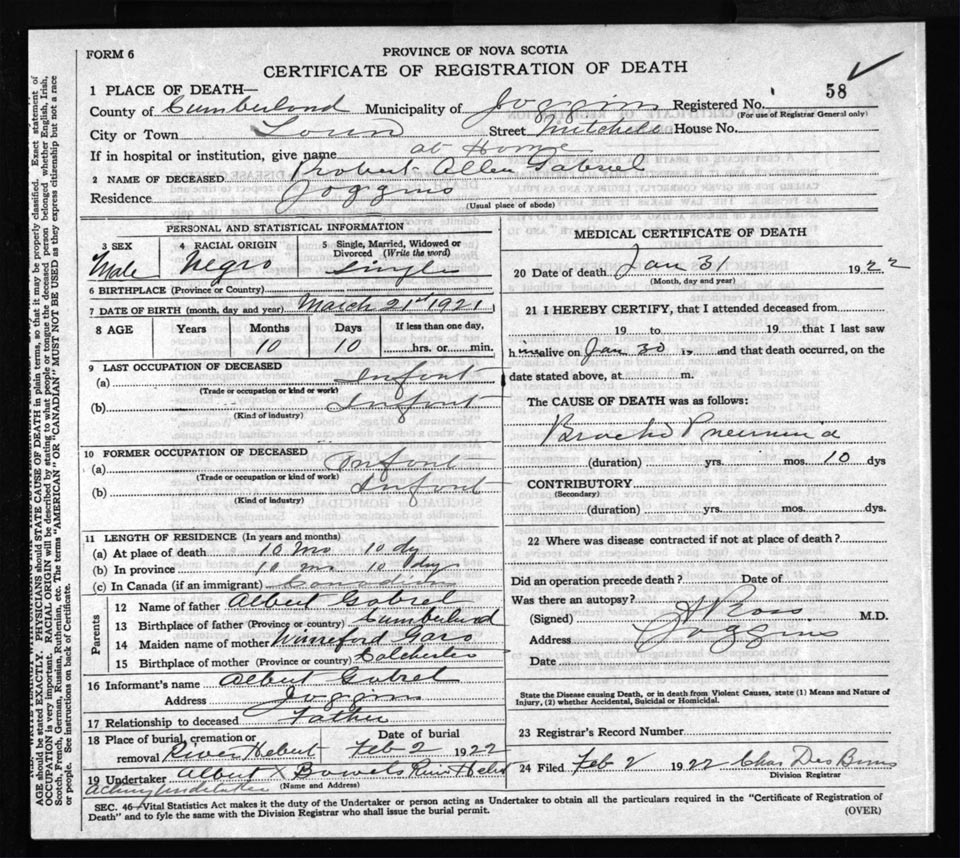 FORM 6
PROVINCE OF NOVA SCOTIA
CERTIFICATE OF REGISTRATION OF DEATH
1 PLACE OF DEATH—
County of Cumberland Municipality of Joggins Registered No. 58
(For use of Registrar General only)
City or Town Town Street Mitchell House No.
If in hospital or institution, give name at Home
2 NAME OF DECEASED Robert Allen Gabriel
Residence Joggins
(Usual place of abode)
PERSONAL AND STATISTICAL INFORMATION
3 SEX Male
4 RACIAL ORIGIN Negro
5 Single, Married, Widowed or Divorced (Write the word) Single
6 BIRTHPLACE (Province or Country)
7 DATE OF BIRTH (month, day and year) March 21st 1921
8 AGE Years Months Days If less than one day,
10 10 hrs. or min.
9 LAST OCCUPATION OF DECEASED
(a) Infant
(Trade or occupation or kind of work)
(b) Infant
(Kind of industry)
10 FORMER OCCUPATION OF DECEASED
(a) Infant
(Trade or occupation or kind of work)
(b) Infant
(Kind of industry)
11 LENGTH OF RESIDENCE (In years and months)
(a) At place of death 10 mo 10 dy
(b) In province 10 mo 10 dys
(c) In Canada (if an immigrant) Canadian
Parents
12 Name of father Albert Gabrel
13 Birthplace of father (Province or country) Cumberland
14 Maiden name of mother Winneford
15 Birthplace of mother (Province or country) Colchester
16 Informant's name Albert Gabrel
Address Joggins
17 Relationship to deceased Father
18 Place of burial, cremation or removal River Hebert
Date of burial Feb 2 1922
19 Undertaker Albert X Bowels River Hebert
(Name and Address)
Acting Undertaker
MEDICAL CERTIFICATE OF DEATH
20 Date of death Jan 31 1922
(Month, day and year)
21 I HEREBY CERTIFY, that I attended deceased from
19 to 19 that I last saw
h im alive on Jan 30 19 and that death occurred, on the
date stated above, at m.
The CAUSE OF DEATH was as follows:
Broncho Pneumonia
(duration) yrs. mos. 10 dys
CONTRIBUTORY
(Secondary)
(duration) yrs. mos. dys.
22 Where was disease contracted if not at place of death?
Did an operation precede death? Date of
Was there an autopsy?
(Signed) Ross M.D.
Address Joggins
Date
State the Disease causing Death, or in death from Violent Causes, state (1) Means and Nature of
Injury, (2) whether Accidental, Suicidal or Homicidal.
23 Registrar's Record Number
24 Filed Feb 2 1922 Chas Des Barres
Division Registrar
SEC. 46—Vital Statistics Act makes it the duty of the Undertaker or person acting as Undertaker to obtain all the particulars required in the "Certificate of Registration of
Death" and to fyle the same with the Division Registrar who shall issue the burial permit.
(OVER)
AGE should be stated EXACTLY. PHYSICIANS should STATE CAUSE OF DEATH in plain terms, so that it may be properly classified. Exact statement of
OCCUPATION is very important. RACIAL ORIGIN will be described by stating to what people or tongue the deceased person belonged whether English, Irish,
Scotch, French, German, Russian, Ruthenian, etc. The terms "AMERICAN" OR "CANADIAN" MUST NOT BE USED as they express citizenship but not a race
or people. See instructions on back of Certificate.